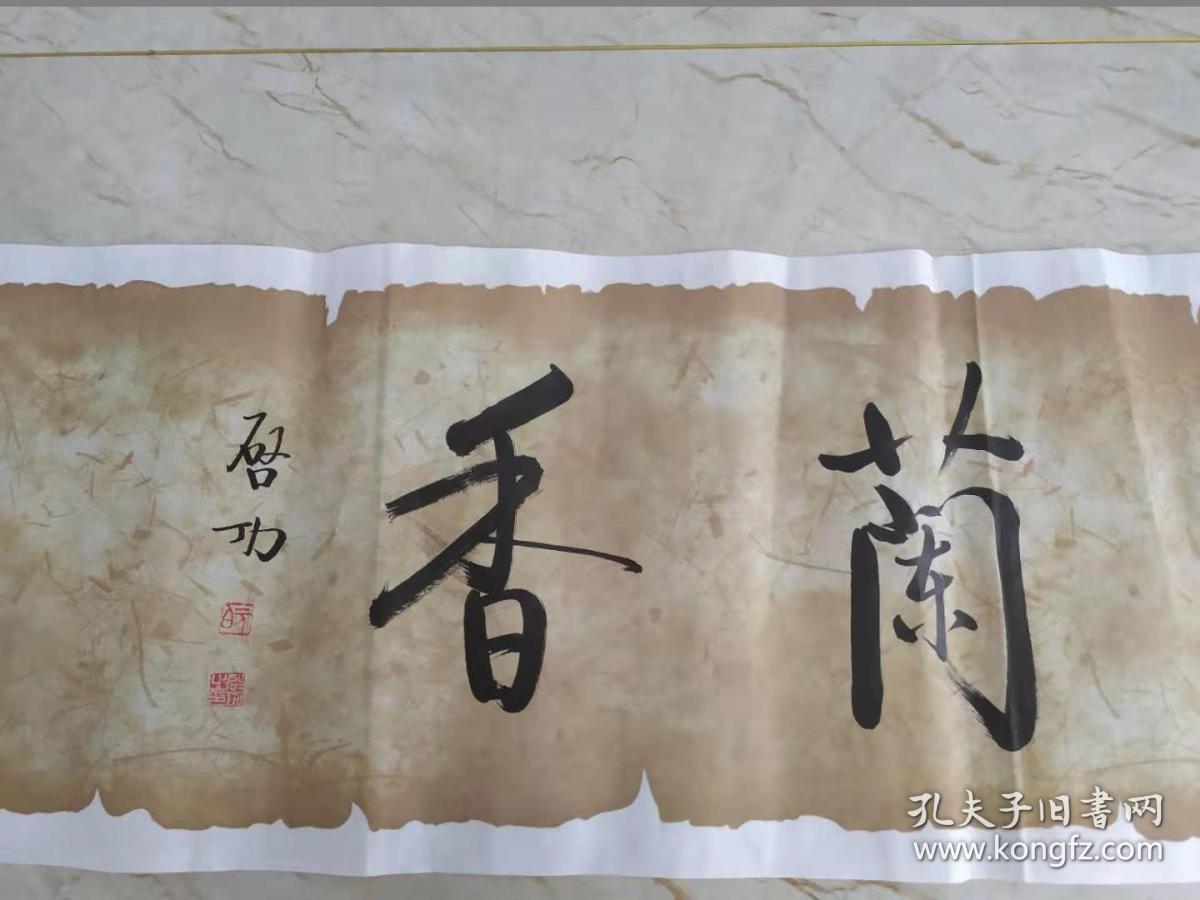 蘭香
啓功
孔夫子旧書网
www.kongfz.com